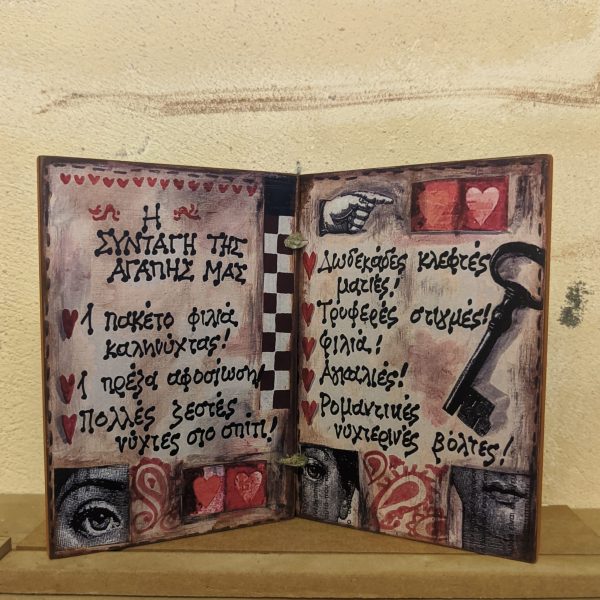 Η
ΣΥΝΤΑΓΗ ΤΗΣ
ΑΓΑΠΗΣ ΜΑΣ
1 πακέτο φιλιά
καληνύχτας!
1 πρέζα αφοσίωση!
Πολλές ζεστές
νύχτες στο σπίτι!
Δωδεκάδες κλεφτές
ματιές!
Τρυφερές στιγμές!
Φιλιά!
Αγκαλιές!
Ρομαντικές
νυχτερινές βόλτες!